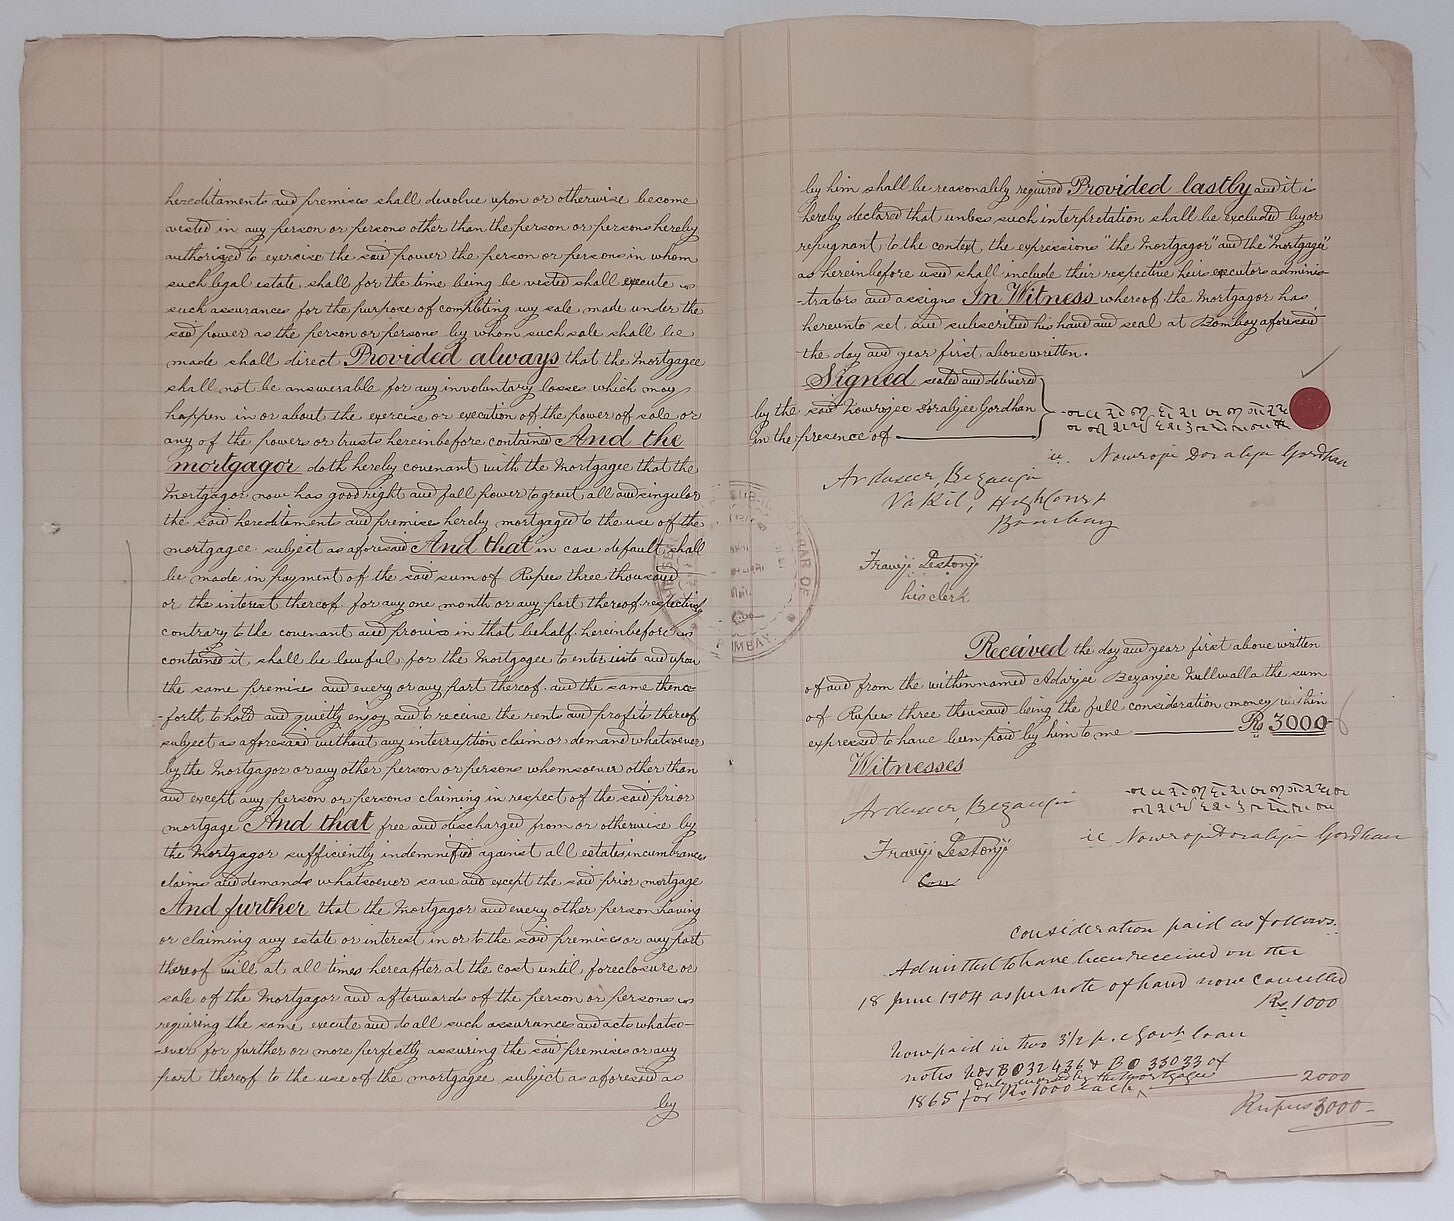 hereditaments and premises shall devolve upon or otherwise become
vested in any person or persons other than the person or persons hereby
authorized to exercise the said power the person or persons in whom
such legal estate shall for the time being be vested shall execute
such assurances for the purpose of completing any sale made under the
said power as the person or persons by whom such sale shall be
made shall direct Provided always that the Mortgagee
shall not be answerable for any involuntary losses which may
happen in or about the exercise or execution of the power of sale or
any of the powers or trusts hereinbefore contained And the
mortgagor doth hereby covenant with the Mortgagee that the
Mortgagor now has good right and full power to grant all and singular
the said hereditaments and premises hereby mortgaged to the use of the
mortgagee subject as aforesaid And that in case default shall
be made in payment of the said sum of Rupees three thousand
or the interest thereof for any one month or any part thereof respectively
contrary to the covenant and proviso in that behalf hereinbefore
contained it shall be lawful for the Mortgagee to enter into and upon
the same premises and every or any part thereof and the same thence
-forth to hold and quietly enjoy and to receive the rents and profits thereof
subject as aforesaid without any interruption claim or demand whatsoever
by the Mortgagor or any other person or persons whomsoever other than
and except any person or persons claiming in respect of the said prior
mortgage And that free and discharged from or otherwise by
the Mortgagor sufficiently indemnified against all estates incumbrances
claims and demands whatsoever save and except the said prior mortgage
And further that the Mortgagor and every other person having
or claiming any estate or interest in or to the said premises or any part
thereof will at all times hereafter at the cost until foreclosure or
sale of the Mortgagor and afterwards of the person or persons
requiring the same execute and do all such assurances and acts whatso-
-ever for further or more perfectly assuring the said premises or any
part thereof to the use of the mortgagee subject as aforesaid as
by
by him shall be reasonably required Provided lastly and it is
hereby declared that unless such interpretation shall be excluded by or
repugnant to the context, the expressions "the Mortgagor" and the "Mortgagee"
as hereinbefore used shall include their respective heirs executors adminis
-trators and assigns In Witness whereof the Mortgagor has
hereunto set and subscribed his hand and seal at Bombay aforesaid
the day and year first above written.
Signed sealed and delivered
by the said Nowrojee Dorabjee Gordhan
in the presence of
Nowroji Dorabjee Gordhan
Ardaseer Bezanji
Vakil, High Court
Bombay
Framji Pestonji
his clerk
Received the day and year first above written
of and from the withinnamed Adarjee Bezanjee the sum
of Rupees three thousand being the full consideration money within
expressed to have been paid by him to me Rs 3000
Witnesses
Ardaseer Bezanji
Nowroji Dorabjee Gordhan
Framji Pestonji
consideration paid as follows.
Admitted to have been received on the
18 June 1904 as per note of hand now cancelled
Rs 1000
Now paid in two 3 1/2 p.c Govt loan
notes Nos B032436 & B033033 of
duly endorsed by the Mortgagee
1865 for Rs 1000 each 2000
Rupees 3000